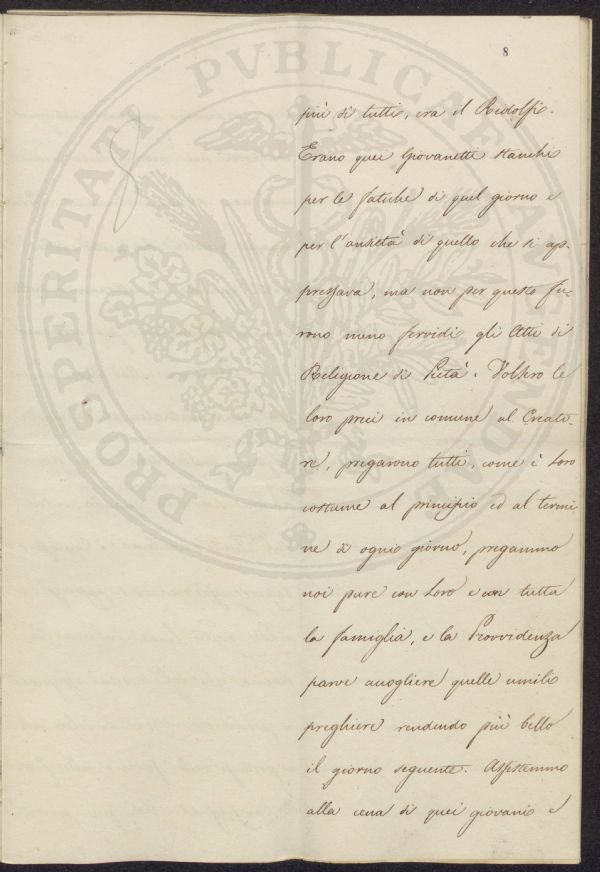 8
8
più di tutti, era il Ridolfi.
Erano quei Giovanetti stanchi
per le fatiche di quel giorno e
per l'ansietà di quello che si ap-
pressava, ma non per questo fu-
rono meno fervidi gli Atti di
Religione di Pietà. Volsero le
loro preci in comune al Creato-
re, pregarono tutti, come è Loro
costume al principio ed al termi
ne di ogni giorno, pregammo
noi pure con Loro e con tutta
la famiglia, e la Provvidenza
parve accogliere quelle umili
preghiere rendendo più bello
il giorno seguente. Assistemmo
alla cena di quei giovani e
PROSPERITATI PVBLICAE AVGENDAE